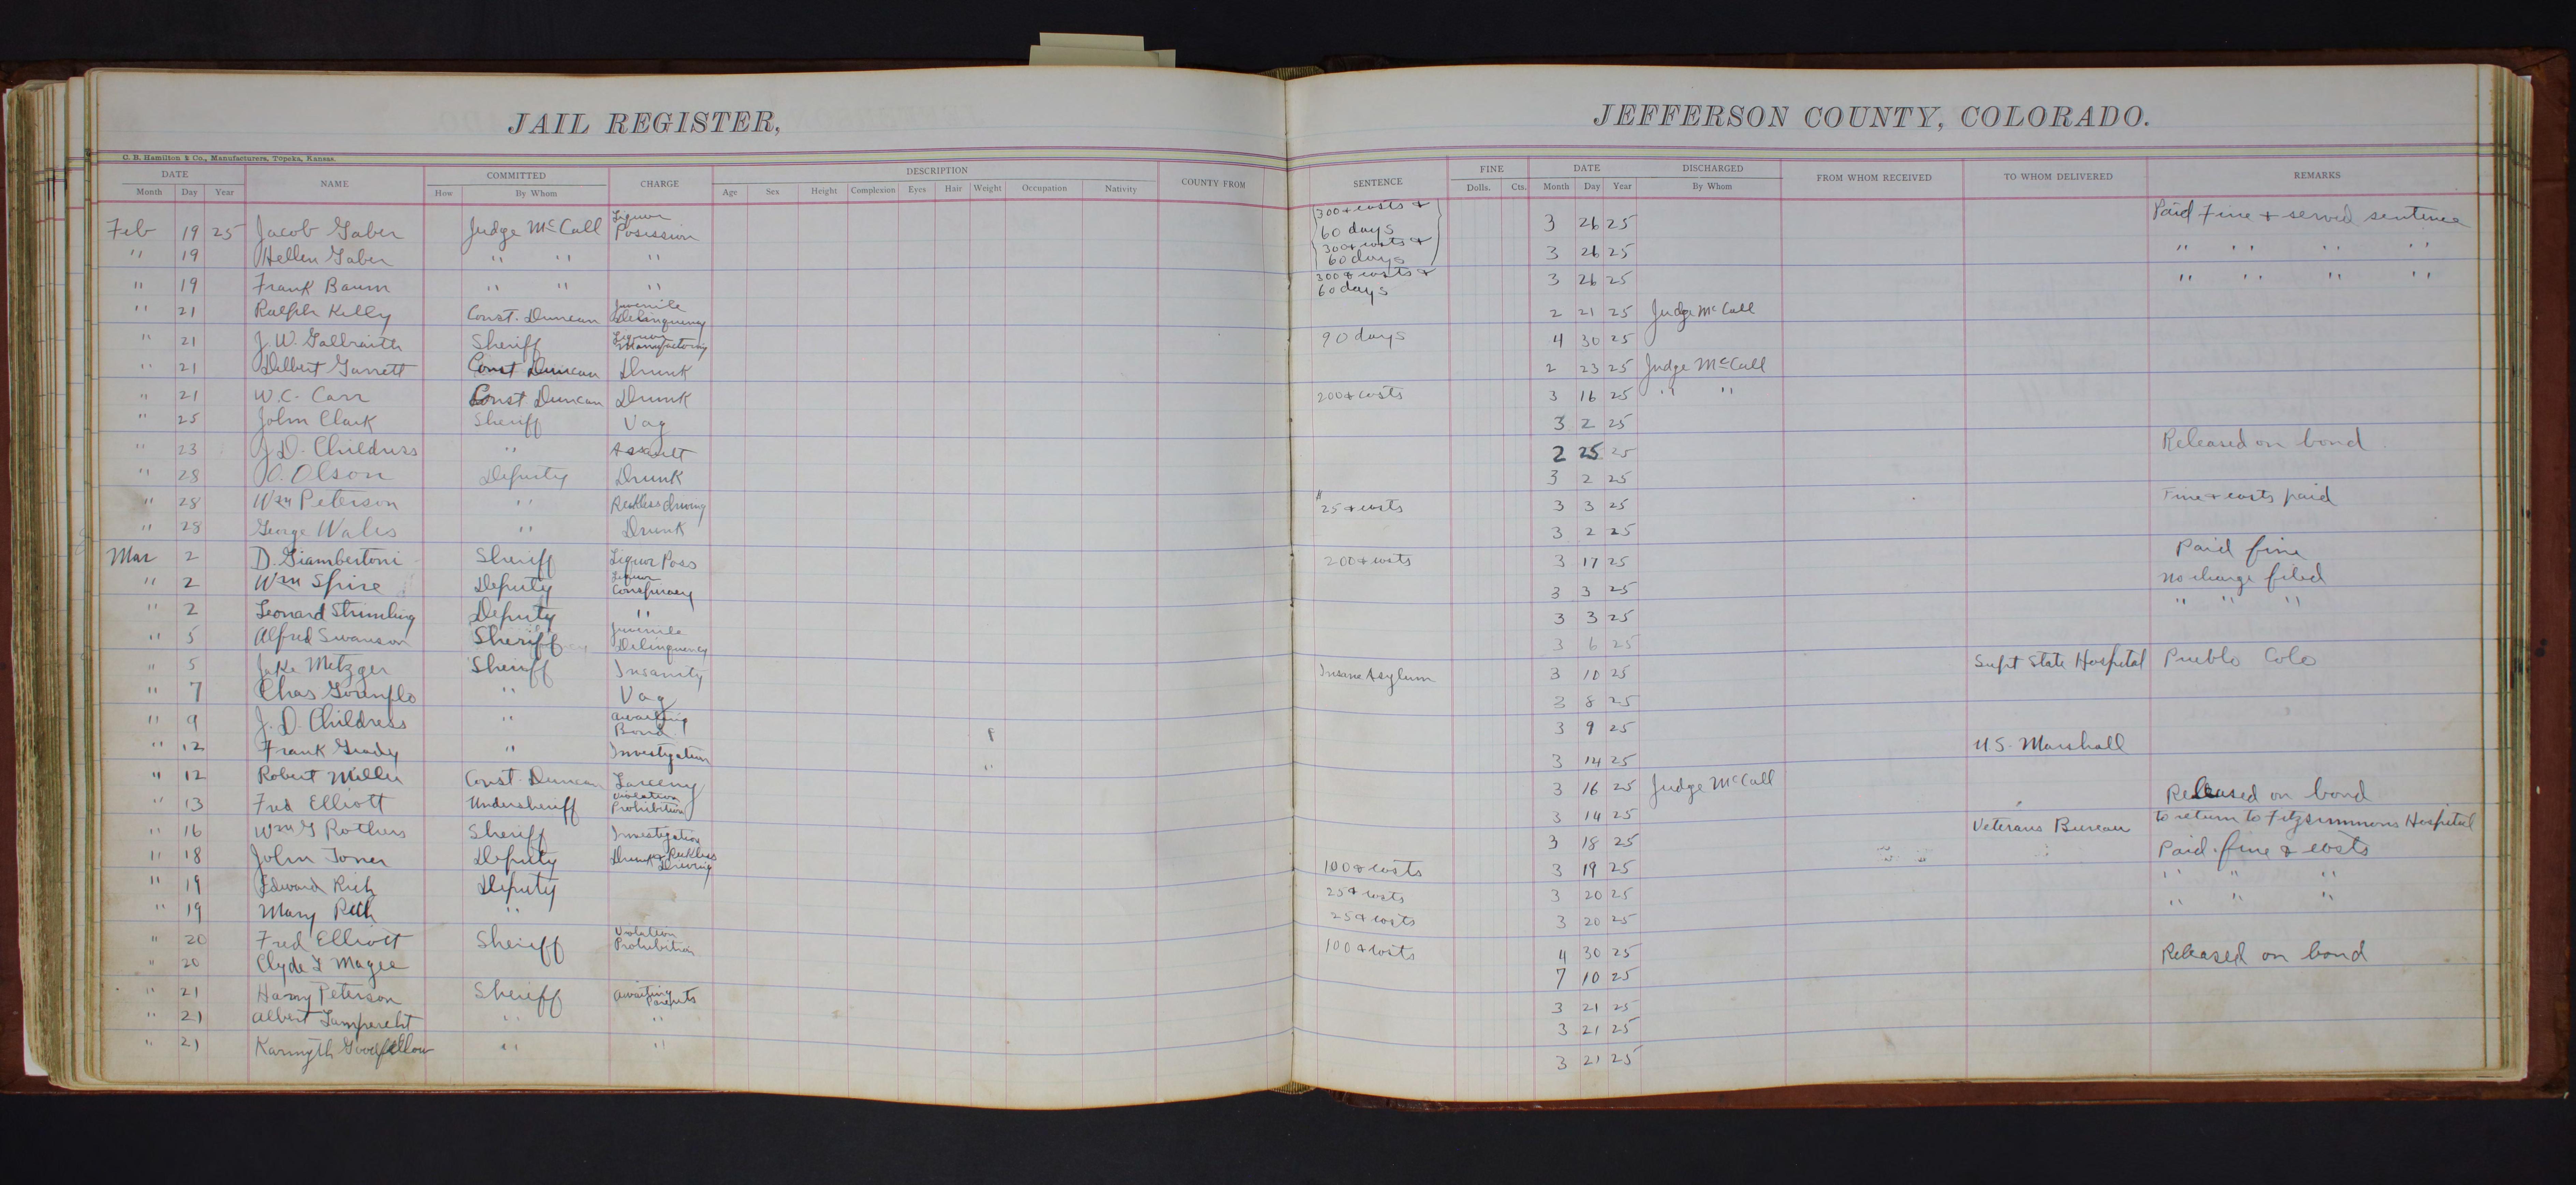 JAIL REGISTER, JEFFERSON COUNTY, COLORADO.
C. B. Hamilton & Co., Manufacturers, Topeka, Kansas.
DATE NAME COMMITTED CHARGE DESCRIPTION COUNTY FROM SENTENCE FINE DATE DISCHARGED FROM WHOM RECEIVED TO WHOM DELIVERED REMARKS
Month Day Year How By Whom Age Sex Height Complexion Eyes Hair Weight Occupation Nativity Dolls. Cts. Month Day Year By Whom
Feb 19 25 Jacob Gaber Judge McCall Liquor Posission 300 & costs & 60 days 3 26 25 Paid Fine & served sentence
" 19 Hellen Gaber " " " 300 & costs & 60 days 3 26 25 " " " "
" 19 Frank Baum " " " 300 & costs & 60 days 3 26 25 " " " "
" 21 Ralph Kelly Const. Duncan Juvenile Delinquency 2 21 25 Judge McCall
" 21 J. W. Galbraith Sheriff Liquor Manufactoring 90 days 4 30 25
" 21 Delbert Garrett Const Duncan Drunk 2 23 25 Judge McCall
" 21 W. C. Carr Const Duncan Drunk 200 & costs 3 16 25 " "
" 25 John Clark Sheriff Vag 3 2 25
" 23 J. D. Childress " Assault 2 25 25 Released on bond
" 28 O. Olson Deputy Drunk 3 2 25
" 28 Wm Peterson " Reckless driving 25 & costs 3 3 25 Fine & costs paid
" 28 George Wales " Drunk 3 2 25
Mar 2 D. Giambertoni Sheriff Liquor Poss 200 & costs 3 17 25 Paid fine
" 2 Wm Spire Deputy Liquor Conspiracy 3 3 25 No charge filed
" 2 Leonard Strimling Deputy " 3 3 25 " " "
" 5 Alfred Swanson Sheriff Juvenile Delinquency 3 6 25
" 5 Jake Metzger Sheriff Insanity Insane Asylum 3 10 25 Supt State Hospital Pueblo Colo
" 7 Chas Gounflo " Vag 3 8 25
" 9 J. D. Childress " awaiting Bond 3 9 25
" 12 Frank Grady " Investigation 3 14 25 U.S. Marshall
" 12 Robert Miller Const. Duncan Larceny 3 16 25 Judge McCall
" 13 Fred Elliott Undersheriff Violation Prohibition 3 14 25 Released on bond
" 16 Wm G Rothers Sheriff Investigation 3 18 25 Veterans Bureau to return to Fitzsimmons Hospital
" 18 John Toner Deputy Drunk & Reckless Driving 100 & costs 3 19 25 Paid fine & costs
" 19 Edward Rich Deputy 25 & costs 3 20 25 " " "
" 19 Mary Rich " 25 & costs 3 20 25 " " "
" 20 Fred Elliott Sheriff Violation Prohibition 100 & costs 4 30 25 Released on bond
" 20 Clyde L Magee 7 10 25
" 21 Harry Peterson Sheriff awaiting Parents 3 21 25
" 21 Albert Lamprecht " " 3 21 25
" 21 Karmyth Goodfellow " " 3 21 25